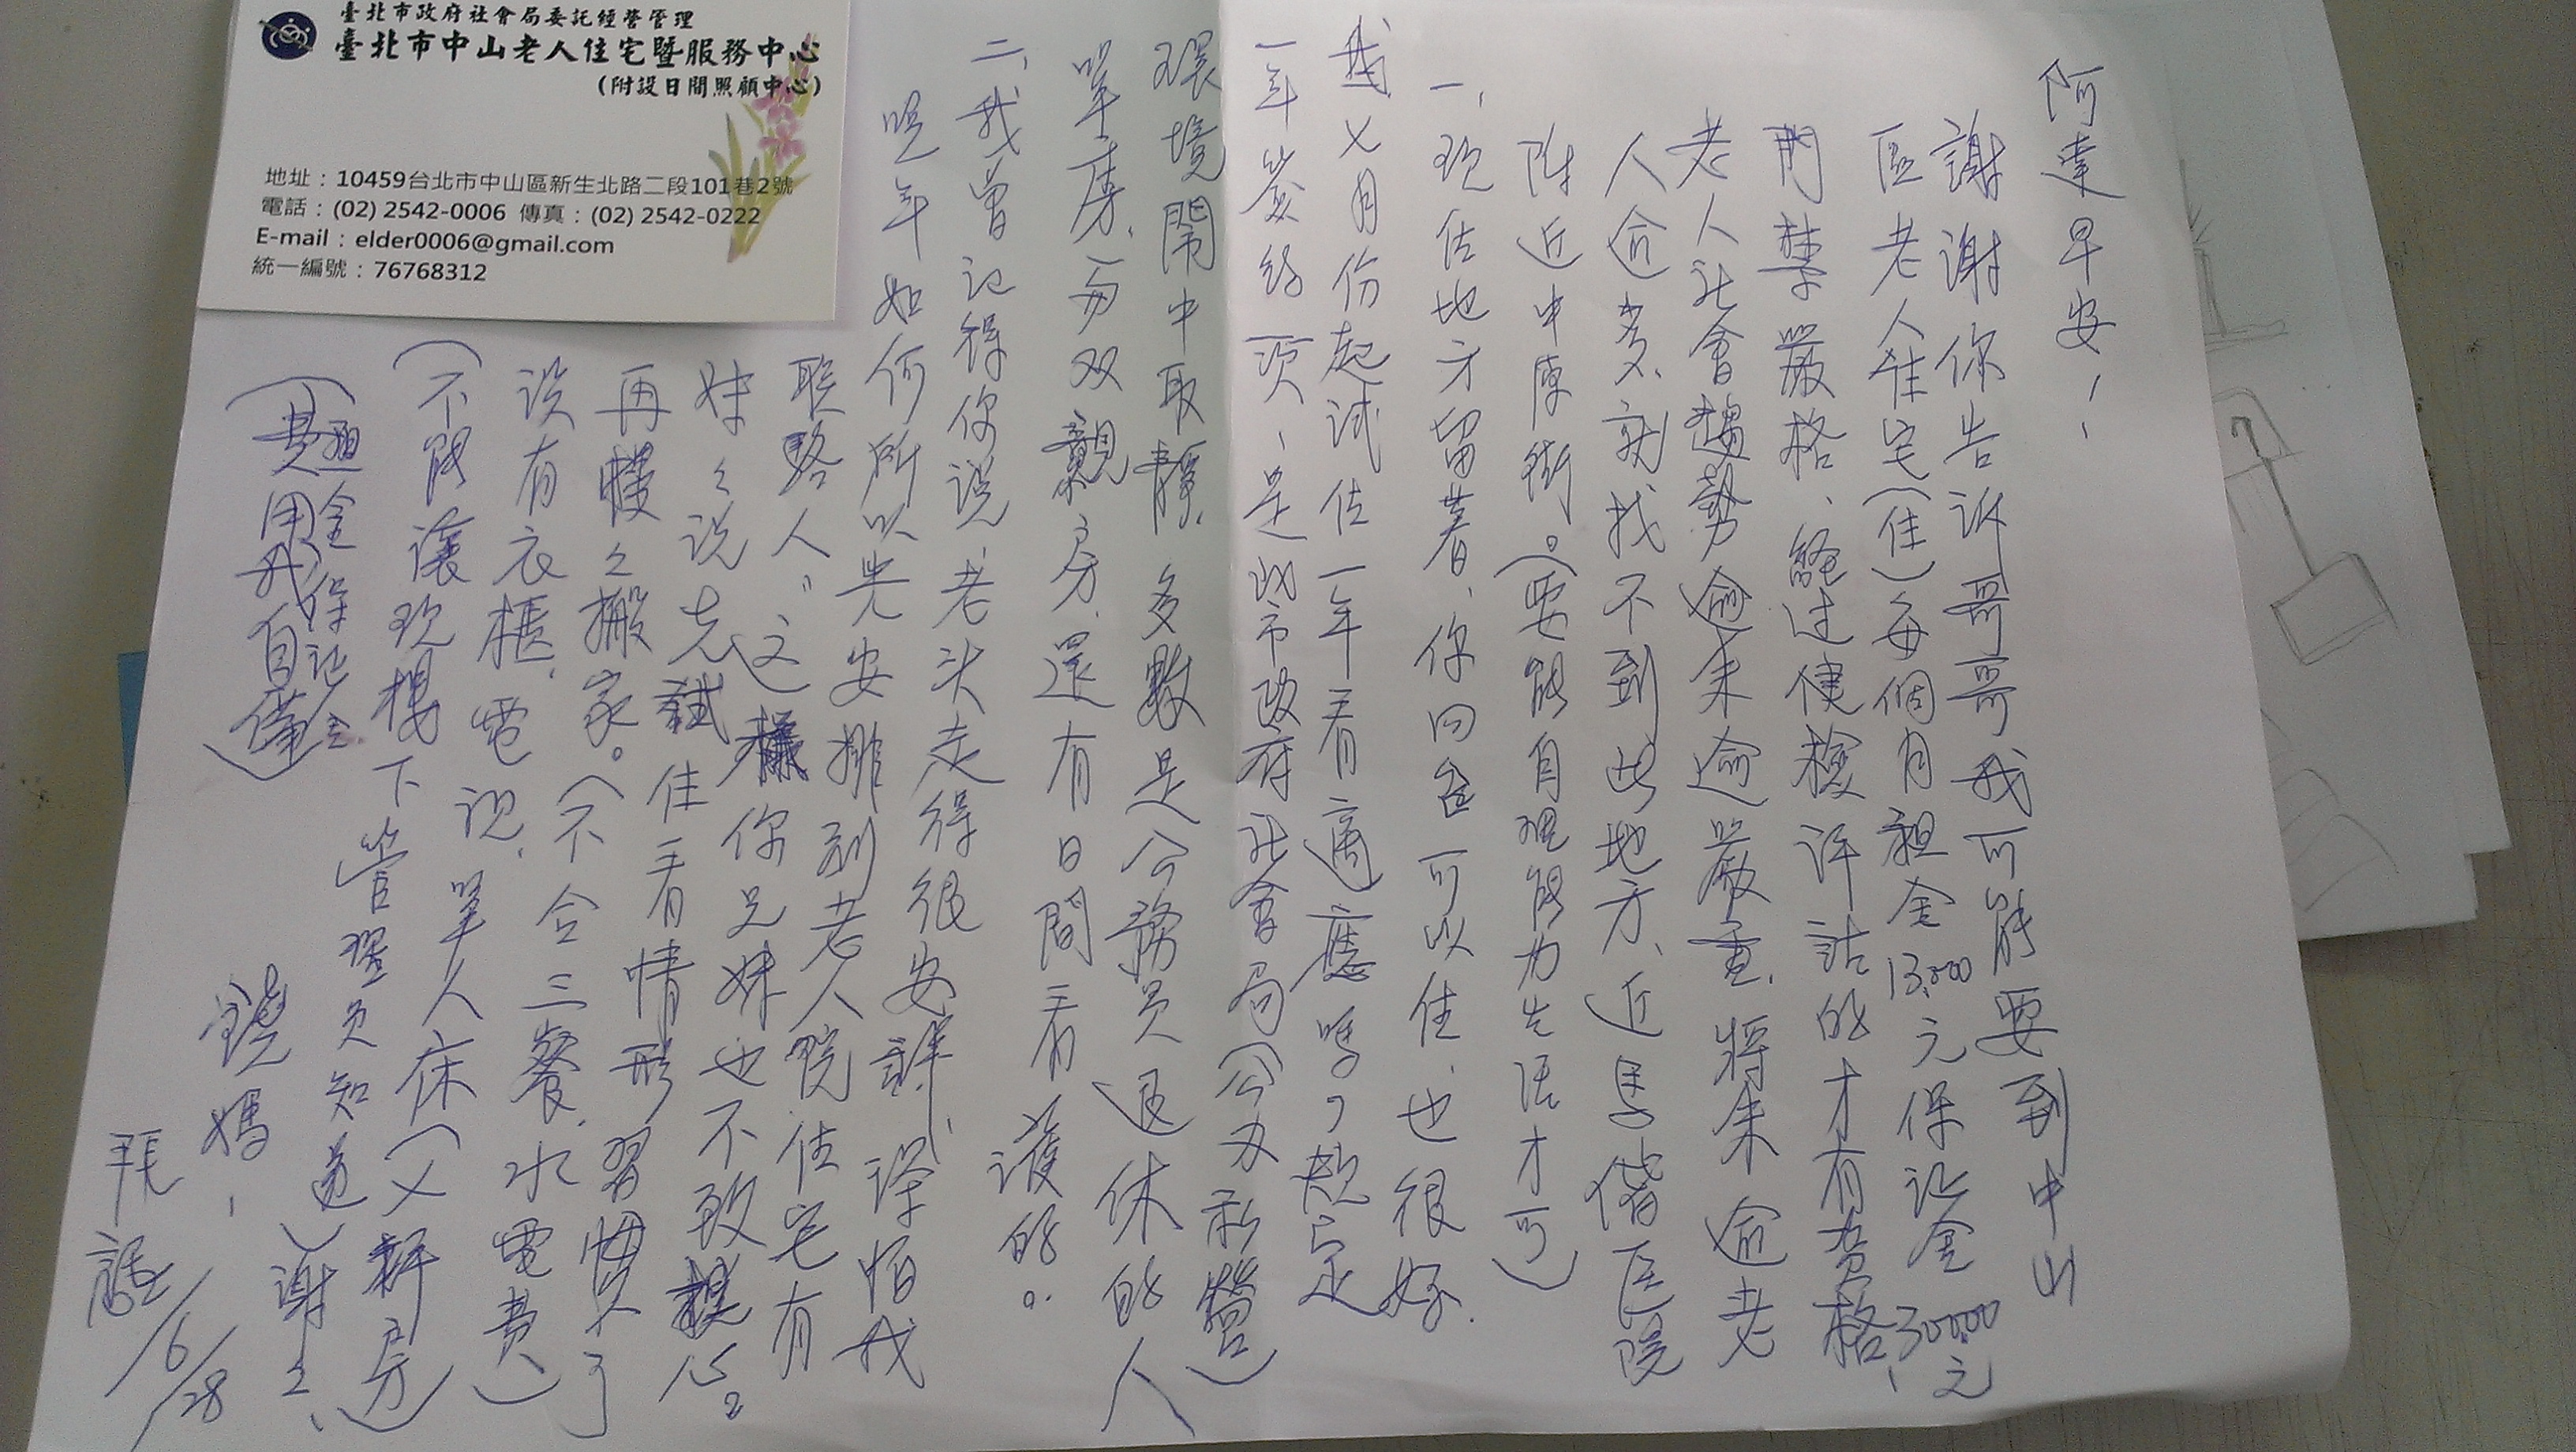 臺北市政府社會局委託經營管理
臺北市中山老人住宅暨服務中心
(附設日間照顧中心)
地址：10459台北市中山區新生北路二段101巷2號
電話：(02) 2542-0006 傳真：(02) 2542-0222
E-mail：elder0006@gmail.com
統一編號：76768312
阿達早安！！
謝謝你告訴哥哥我可能要到中山
區老人住宅(住)每個月租金13,000元保証金30000元
門禁嚴格、經过健檢評估的才有資格、
老人社會趨勢愈來愈嚴重.將來愈老
人愈多、就找不到此地方、近馬偕医院
附近中原街。(要能自理能力生活才可)
一，現住地方留著、你回台可以住.也很好.
我七月份起試住一年看適應嗎？規定
一年簽約一次、是北市政府社會局(公办私營)
環境鬧中取靜.多數是公務員退休的人
單房、有双親房、還有日間看護的。
二、我曾記得你説,老头走得很安詳、深怕我
晚年如何所以先安排到老人院住宅有
联絡人,這樣你兄妹也不致操心。
妹々説先試住看情形習慣了
再慢々搬家。(不含三餐.水電費)
設有衣櫃.電視.單人床(又新房)
(不能讓現樓下管理員知道)謝々、
(租金保証金
費用我自備)
鐃媽、
張 6/28